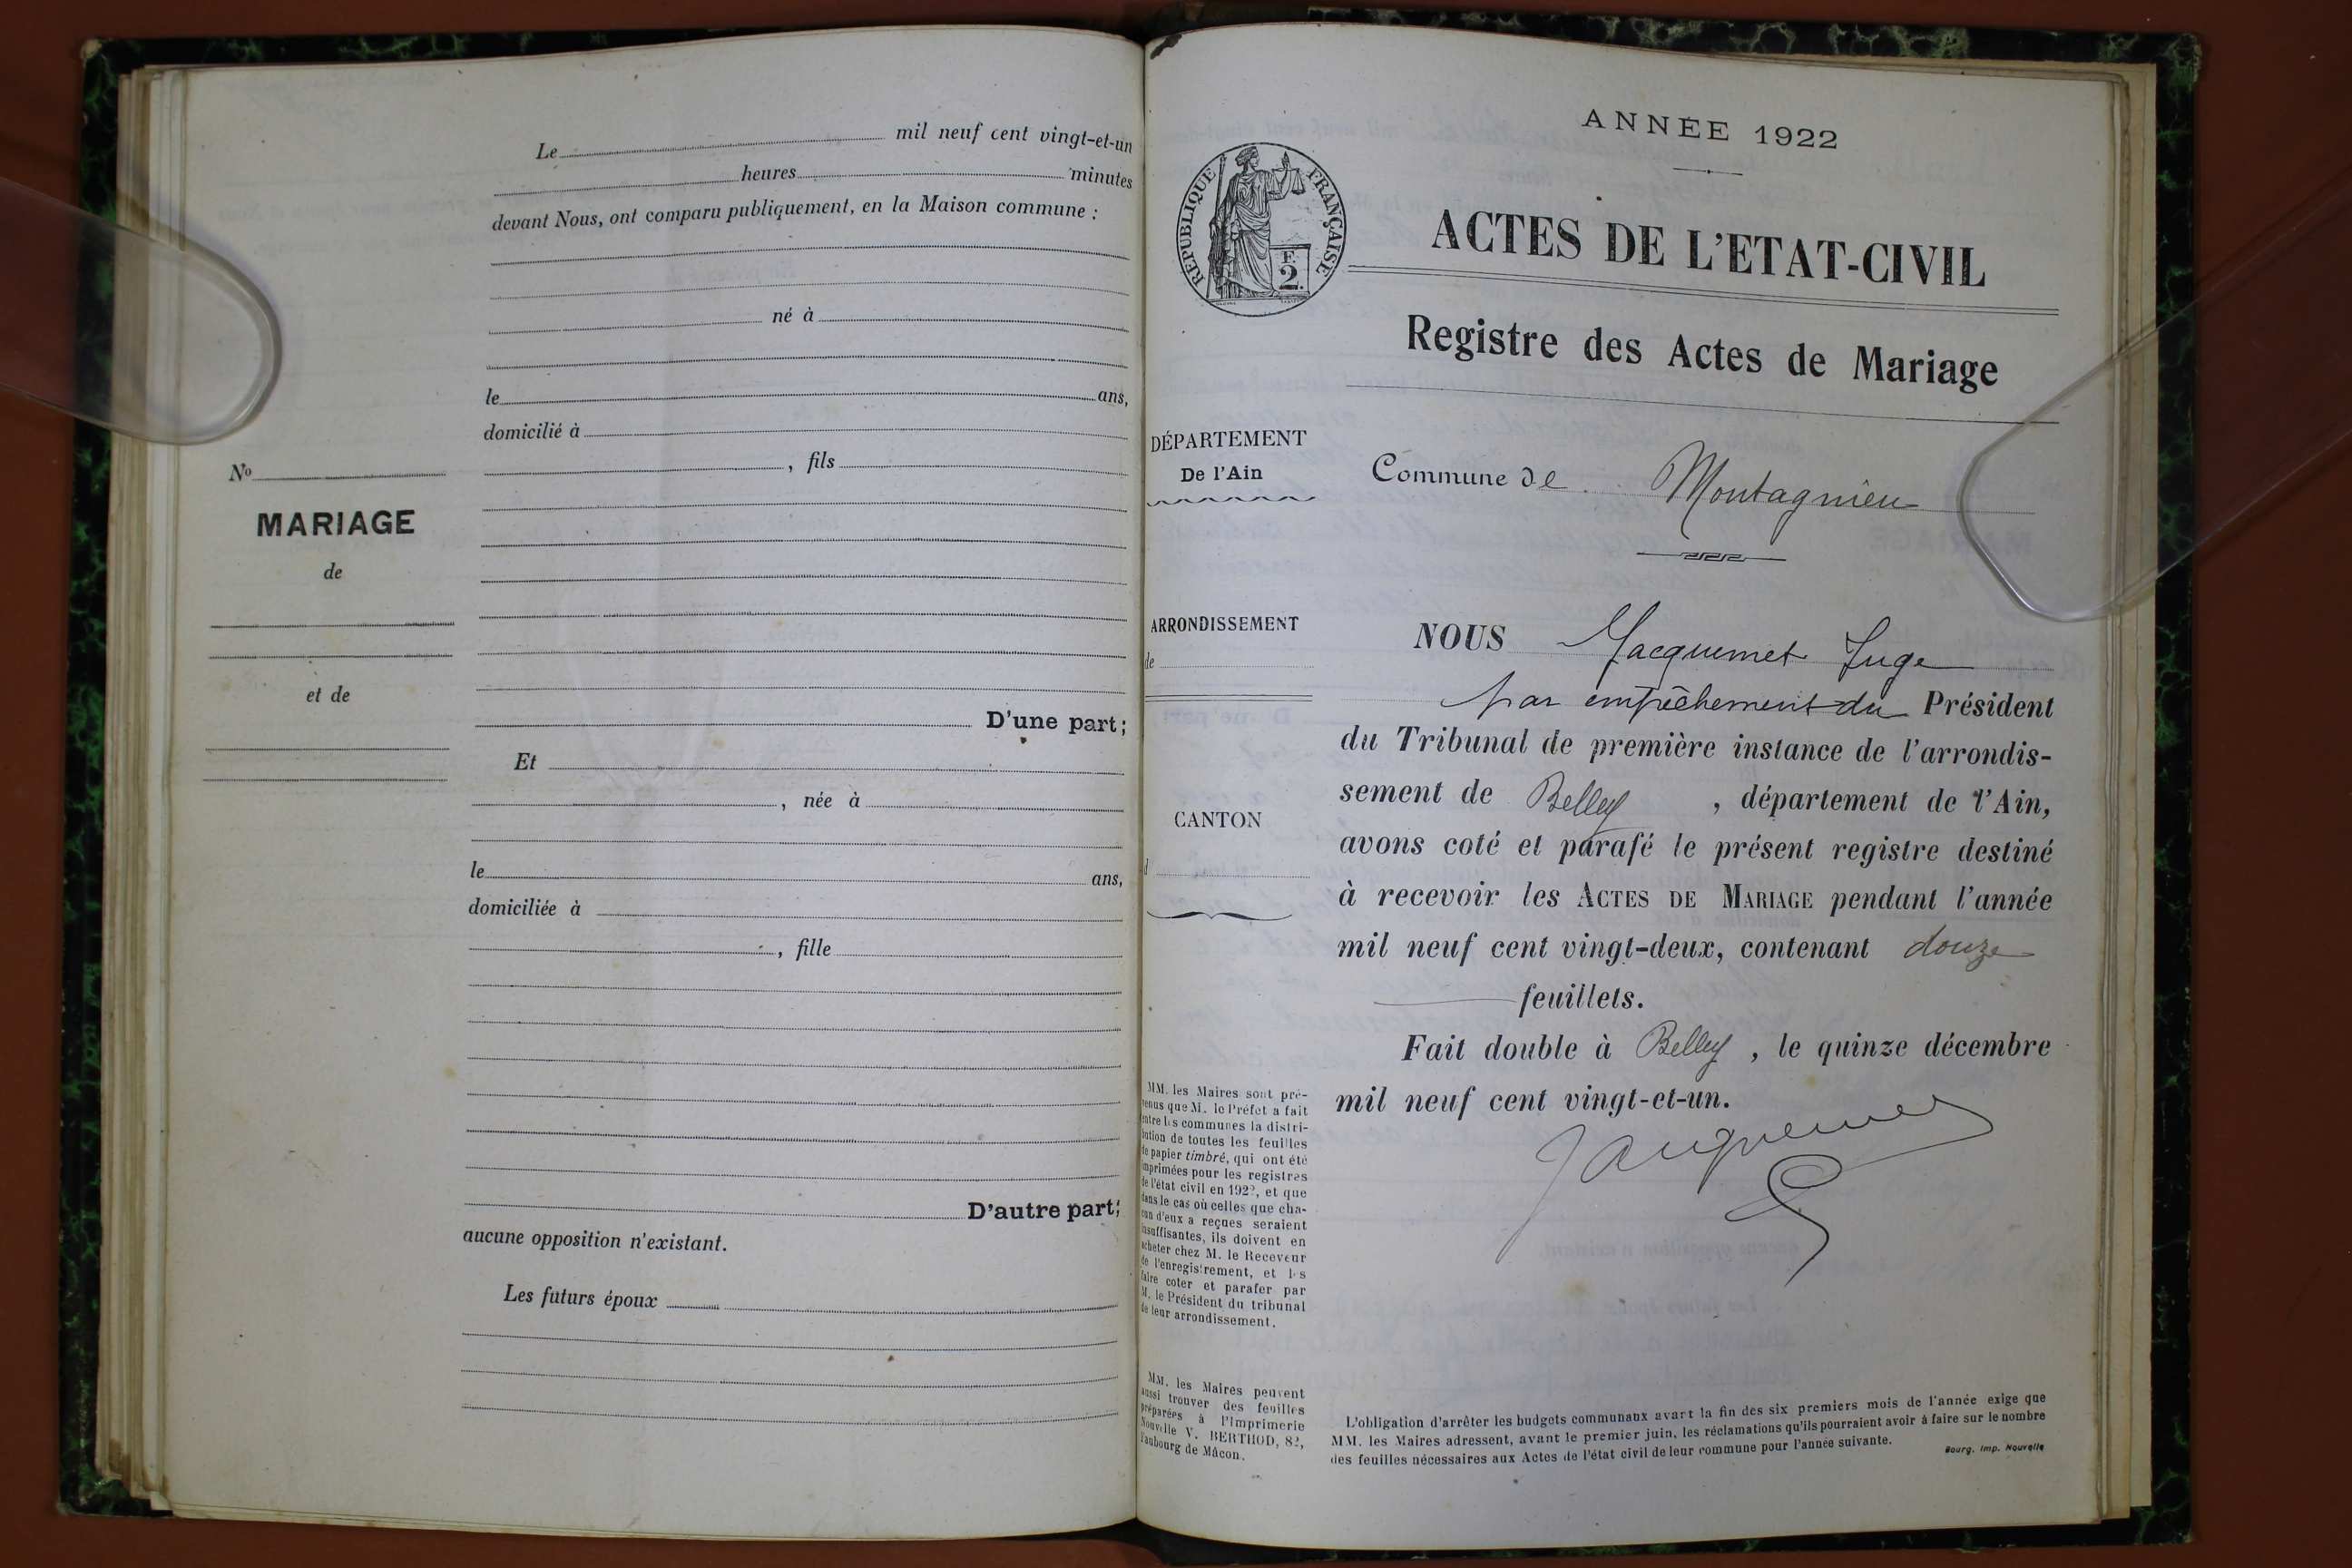 Le mil neuf cent vingt-et-un
heures minutes
devant Nous, ont comparu publiquement, en la Maison commune :
né à
le ans,
domicilié à
, fils
No
MARIAGE
de
et de
D'une part;
Et
, née à
le ans,
domiciliée à
, fille
D'autre part;
aucune opposition n'existant.
Les futurs époux
ANNÉE 1922
RÉPUBLIQUE FRANÇAISE
F.
2.
ACTES DE L'ETAT-CIVIL
Registre des Actes de Mariage
DÉPARTEMENT
De l'Ain
Commune de Montagnieu
ARRONDISSEMENT
de
CANTON
d
NOUS Jacquemet Juge
par empêchement du Président
du Tribunal de première instance de l'arrondis-
sement de Belley , département de l'Ain,
avons coté et parafé le présent registre destiné
à recevoir les ACTES DE MARIAGE pendant l'année
mil neuf cent vingt-deux, contenant douze
feuillets.
Fait double à Belley , le quinze décembre
mil neuf cent vingt-et-un.
Jacquemet
MM. les Maires sont pré-
venus que M. le Préfet a fait
entre les communes la distri-
bution de toutes les feuilles
de papier timbré, qui ont été
imprimées pour les registres
de l'état civil en 1922, et que
dans le cas où celles que cha-
cun d'eux a reçues seraient
insuffisantes, ils doivent en
acheter chez M. le Receveur
de l'enregistrement, et les
faire coter et parafer par
M. le Président du tribunal
de leur arrondissement.
MM. les Maires peuvent
aussi trouver des feuilles
préparées à l'Imprimerie
Nouvelle V. BERTHOD, 82,
faubourg de Mâcon.
L'obligation d'arrêter les budgets communaux avart la fin des six premiers mois de l'année exige que
MM. les Maires adressent, avant le premier juin, les réclamations qu'ils pourraient avoir à faire sur le nombre
des feuilles nécessaires aux Actes de l'état civil de leur commune pour l'année suivante.
Bourg. Imp. Nouvelle